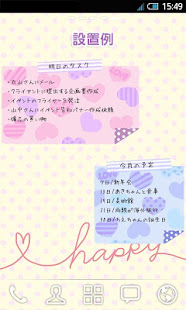 15:49
設置例
明日のタスク
・丸山さんにメール
・クライアントに提出する企画書作成
・イベントのフライヤーを発注
・山中さんにイベント告知バナー作成依頼
・備品の買い物
今月の予定
7日/新年会
11日/あきちゃんと食事
15日/美容院
18日/両親が海外旅行
22日/おえちゃんの誕生日
happy